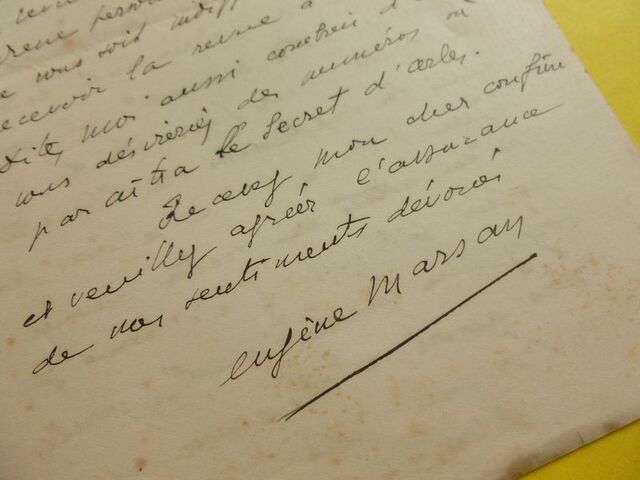 vous soit
recevoir la revue à
Dites moi aussi combien d'
vous désireriez des numéros où
paraîtra le Secret d'arles.
Recevez mon cher confrère
et veuillez agréer l'assurance
de nos sentiments dévoués
Eugène Marsan